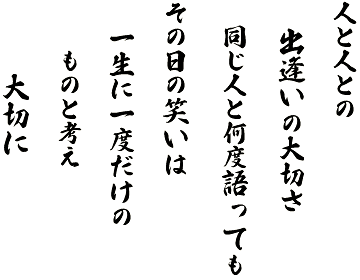 人と人との
出逢いの大切さ
同じ人と何度語っても
その日の笑いは
一生に一度だけの
ものと考え
大切に